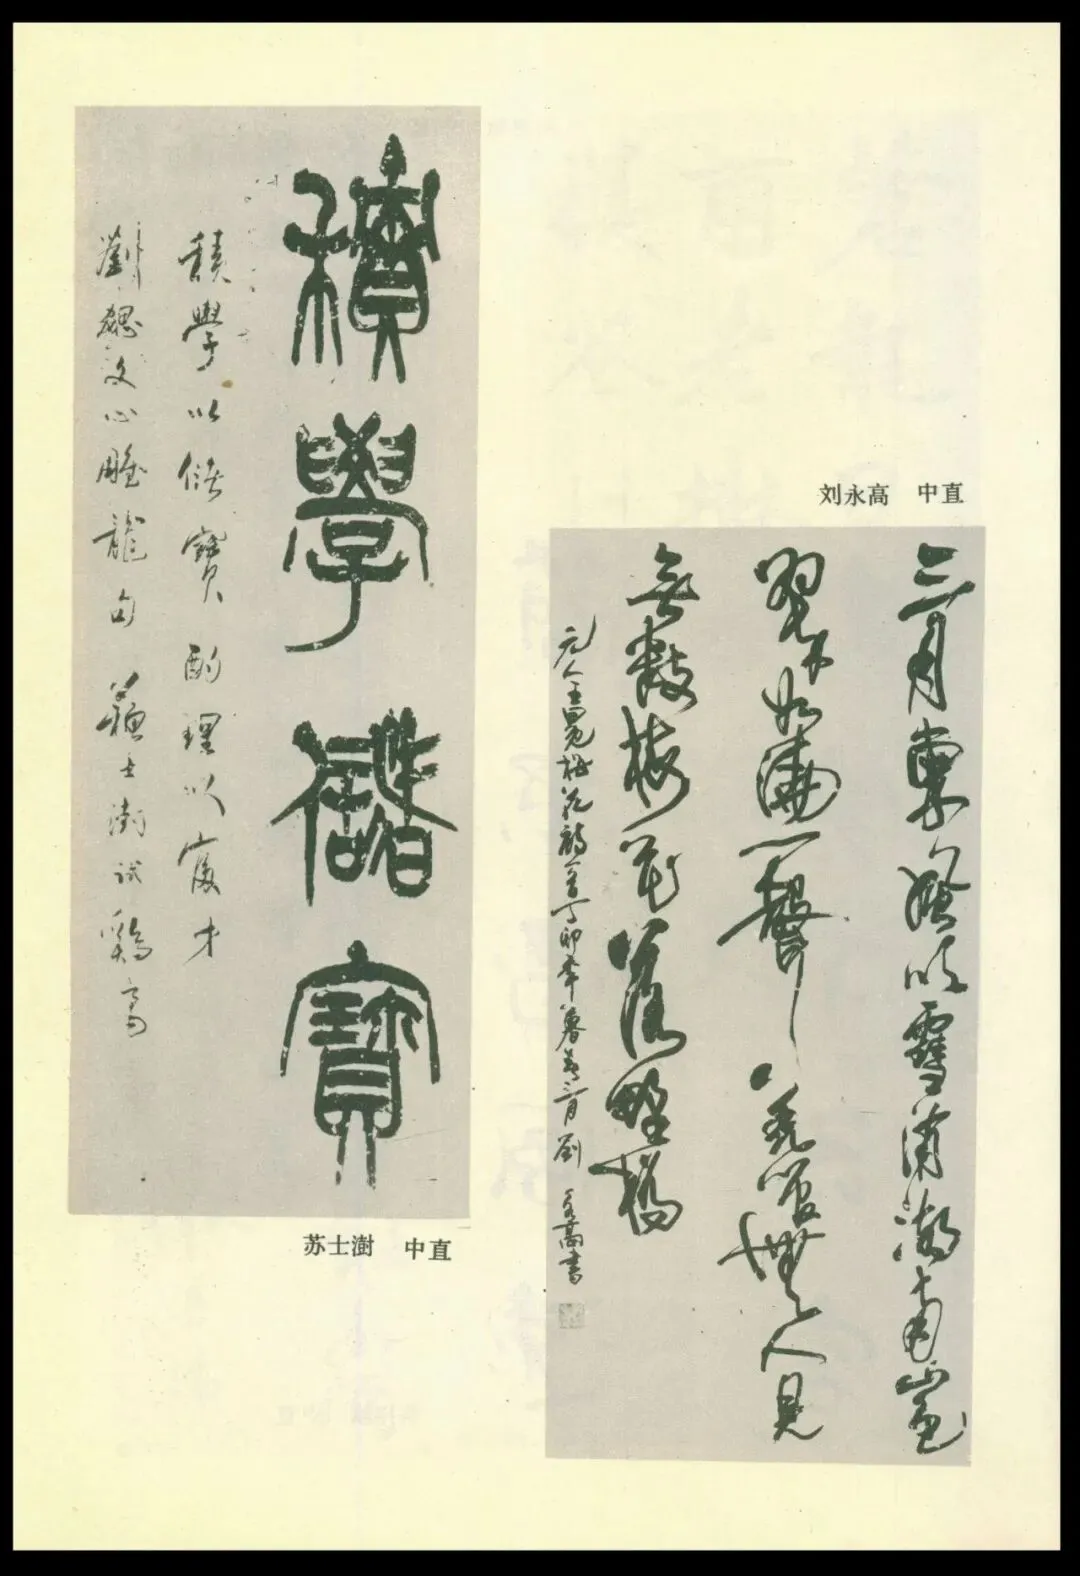 積學儲寶
積學以儲寶酌理以富才
劉勰文心雕龍句 蘇士澍試鷄毫
苏士澍 中直
刘永高 中直
三月東風吹雪消湖南山色
翠如澆一聲羌管無人見
無數梅花落野橋
元人王冕梅花詩丁卯年暮春三月劉永高書